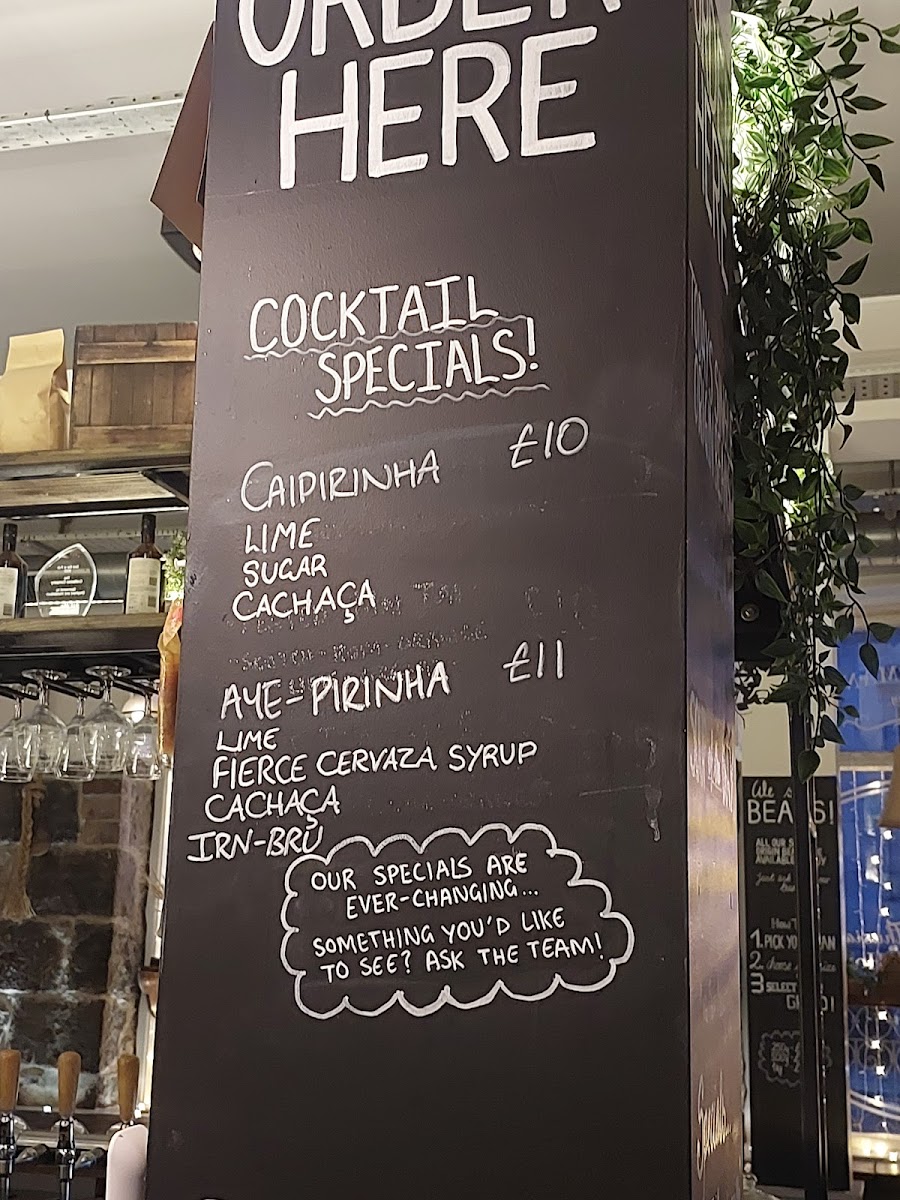 ORDER
HERE
COCKTAIL
SPECIALS!
CAIPIRINHA £10
LIME
SUGAR
CACHAÇA
AYE-PIRINHA £11
LIME
FIERCE CERVAZA SYRUP
CACHAÇA
IRN-BRU
OUR SPECIALS ARE
EVER-CHANGING...
SOMETHING YOU'D LIKE
TO SEE? ASK THE TEAM!
We
1. PICK
2. choose
3 SELECT
Specials